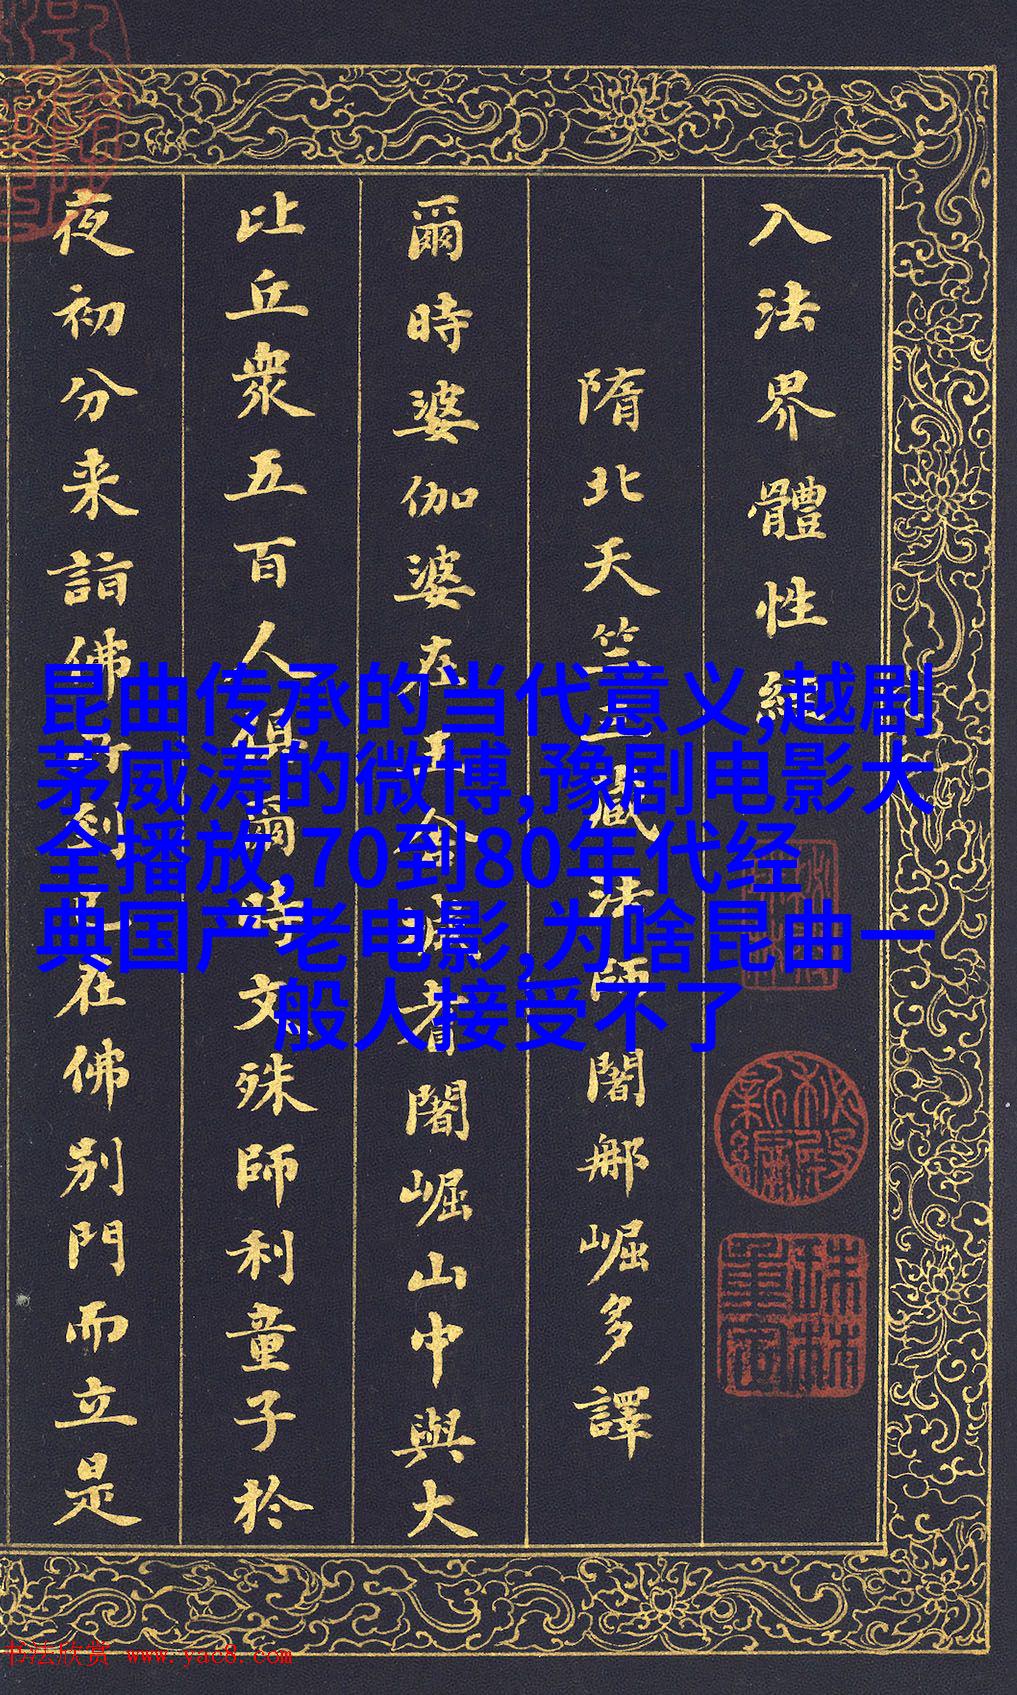 入法界體性經
隋北天竺三藏法師闍那崛多譯
爾時婆伽婆在王舍城耆闍崛山中與大
比丘眾五百人俱爾時文殊師利童子於
夜初分来詣佛所到已在佛別門而立是
昆曲传承的当代意义,越剧
茅威涛的微博,豫剧电影大
全播放,70到80年代经
典国产老电影,为啥昆曲一
般人接受不了
秘殿新編
珠林重定
书法欣赏 www.yac8.com